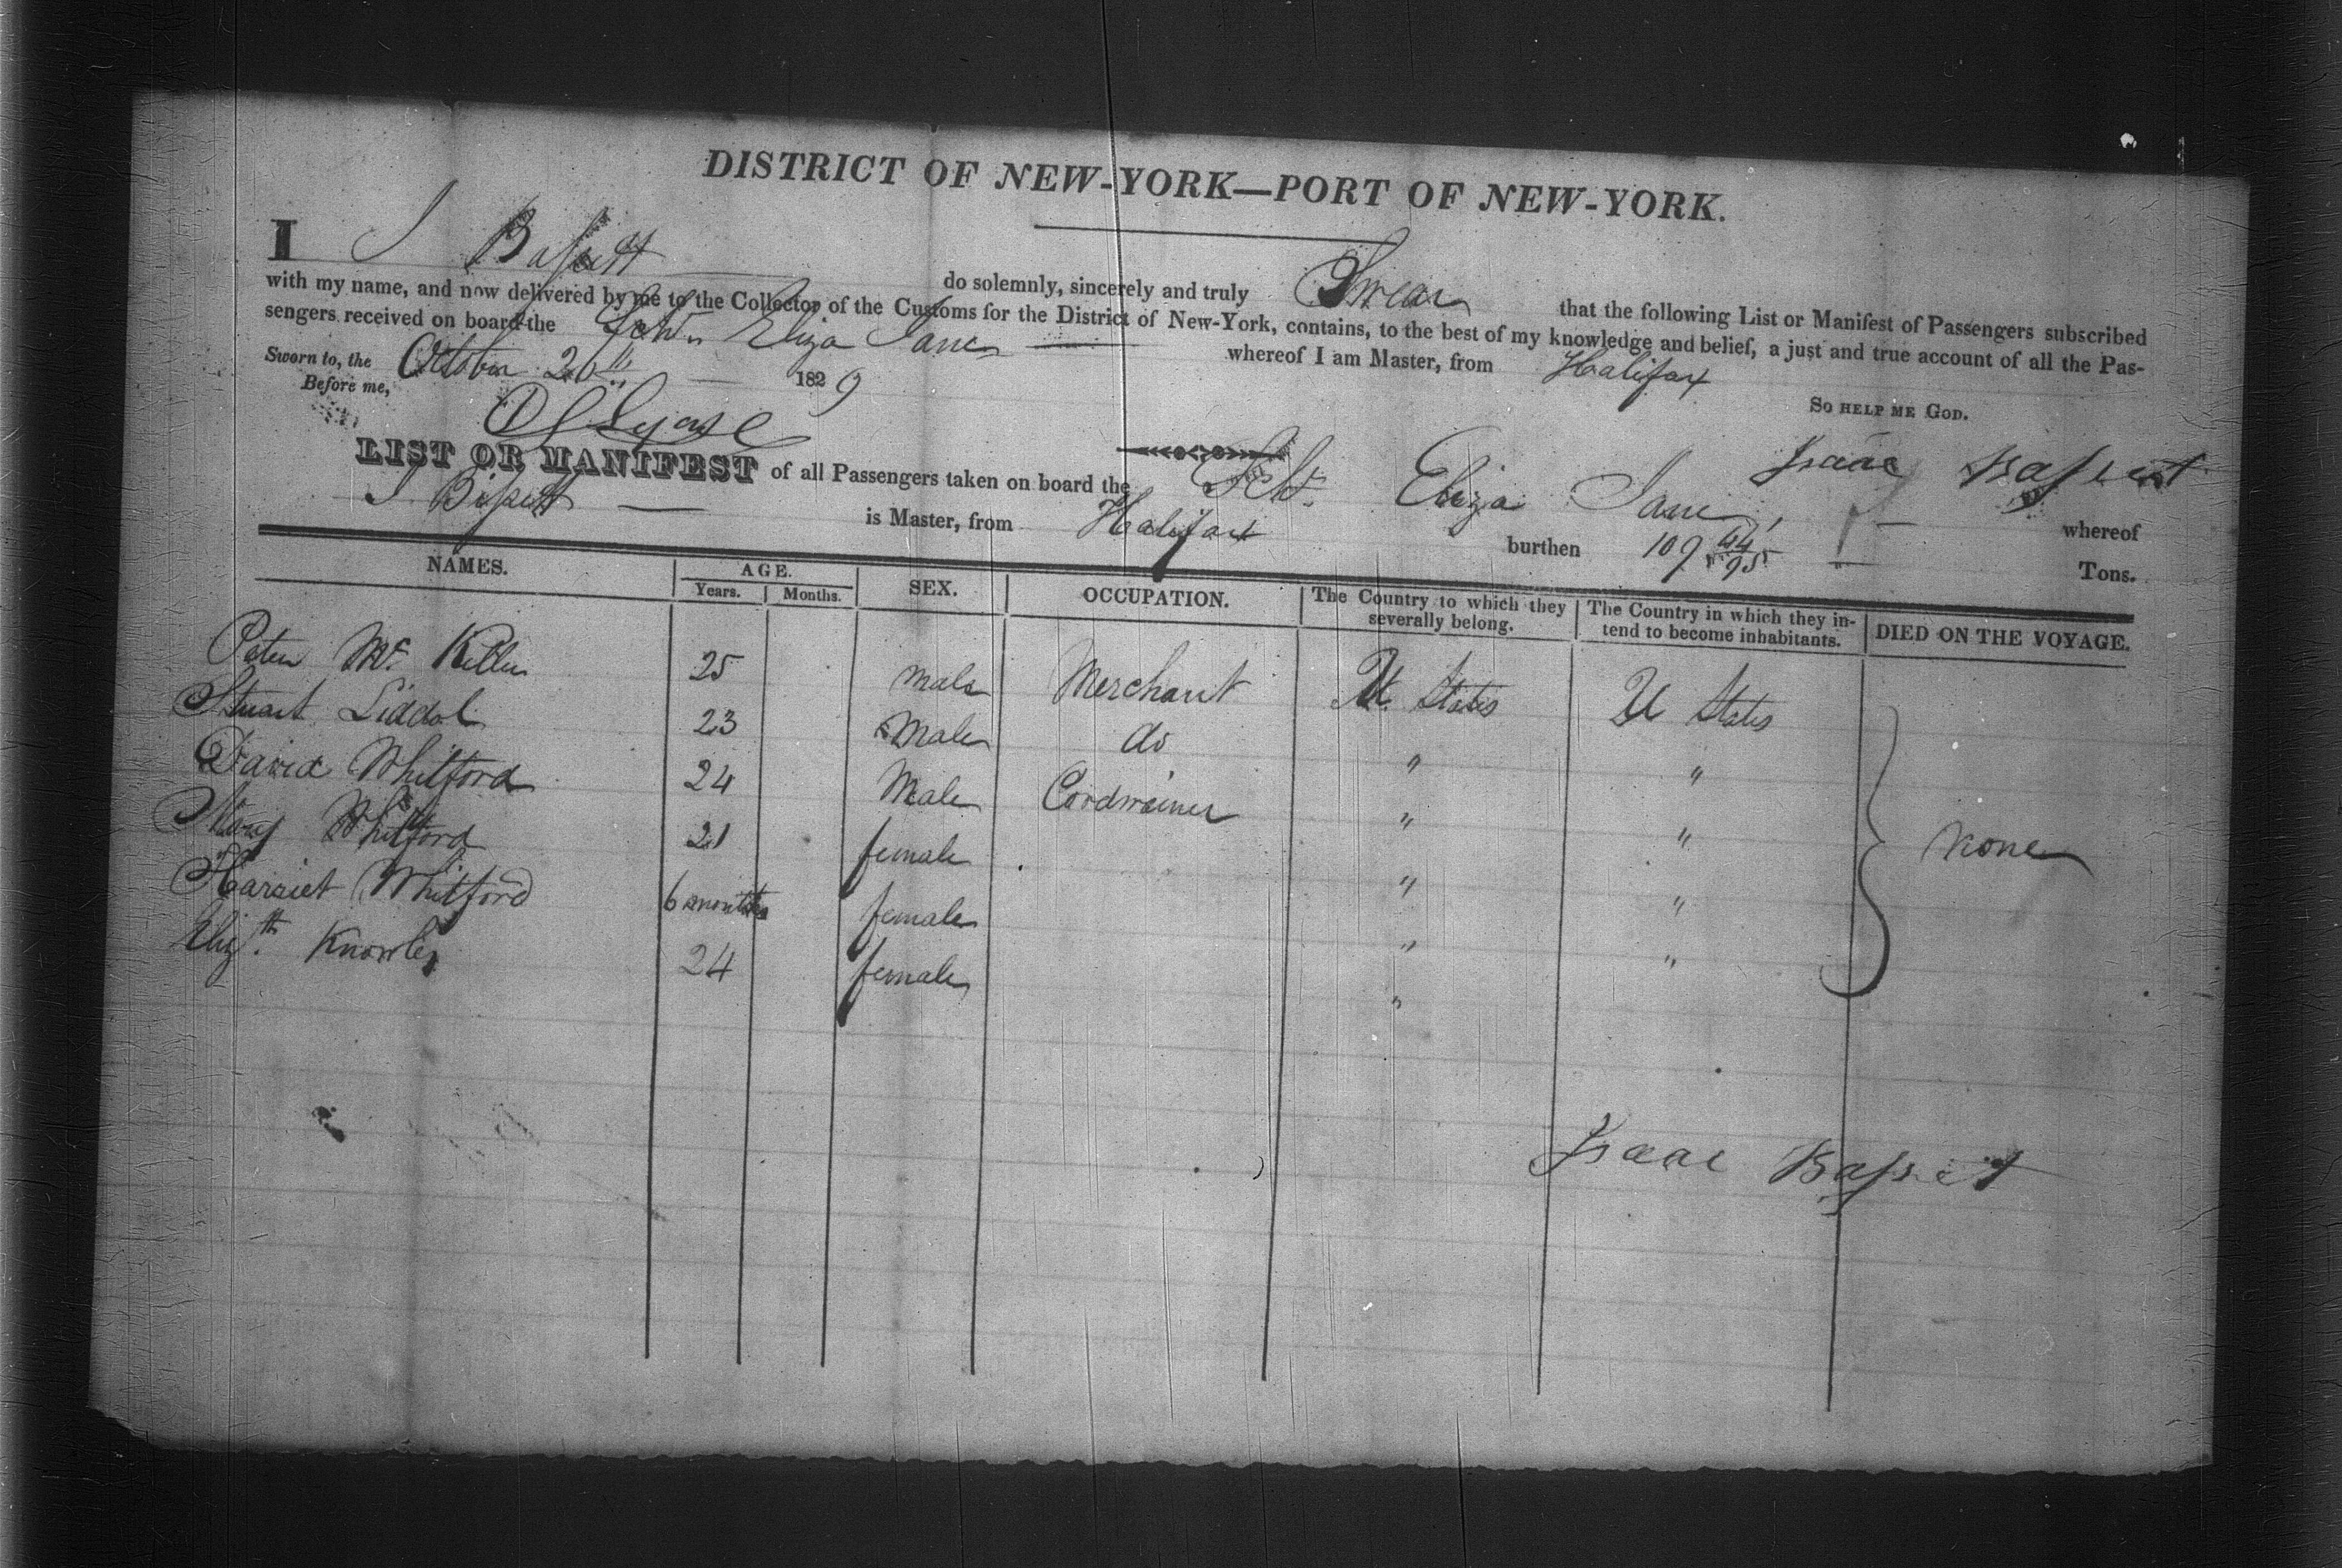 DISTRICT OF NEW-YORK—PORT OF NEW-YORK.
I I Bassett do solemnly, sincerely and truly Swear that the following List or Manifest of Passengers subscribed
with my name, and now delivered by me to the Collector of the Customs for the District of New-York, contains, to the best of my knowledge and belief, a just and true account of all the Pas-
sengers received on board the Schr. Eliza Jane whereof I am Master, from Halifax
Sworn to, the October 26th 1829 SO HELP ME GOD.
Before me,
Isaac Bassett
LIST OR MANIFEST of all Passengers taken on board the Eliza Jane, whereof
I Bassett is Master, from Halifax burthen 109 44/95 Tons.
NAMES. AGE. SEX. OCCUPATION. The Country to which they severally belong. The Country in which they in-tend to become inhabitants. DIED ON THE VOYAGE.
Years. Months.
Peter Mc Killer 25 male Merchant U States U States
Stuart Liddol 23 Male do " "
David Whitford 24 Male Cordwainer " "
Mary Whitford 21 female " " none
Harriet Whitford 6 months female " "
Elizth. Knowles 24 female "
Isaac Bassett